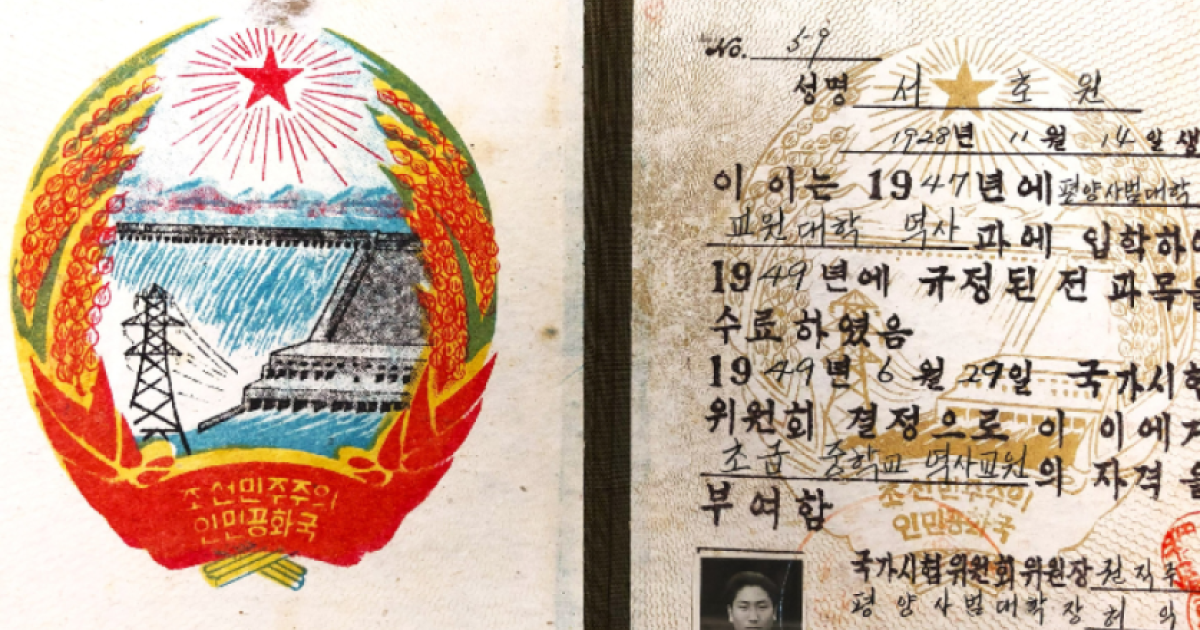 조선민주주의
인민공화국
No. 59
성명 서호원
1928년 11월 14일생
이 이는 1947년에 평양사범대학
교원대학 력사과에 입학하
1949년에 규정된 전 과목
수료하였음
1949년 6월 29일 국가시험
위원회 결정으로 이 이에게
초급 중학교 력사교원의 자격을
부여함
조선민주주의
인민공화국
국가시험위원회위원장
평양사범대학장 허익